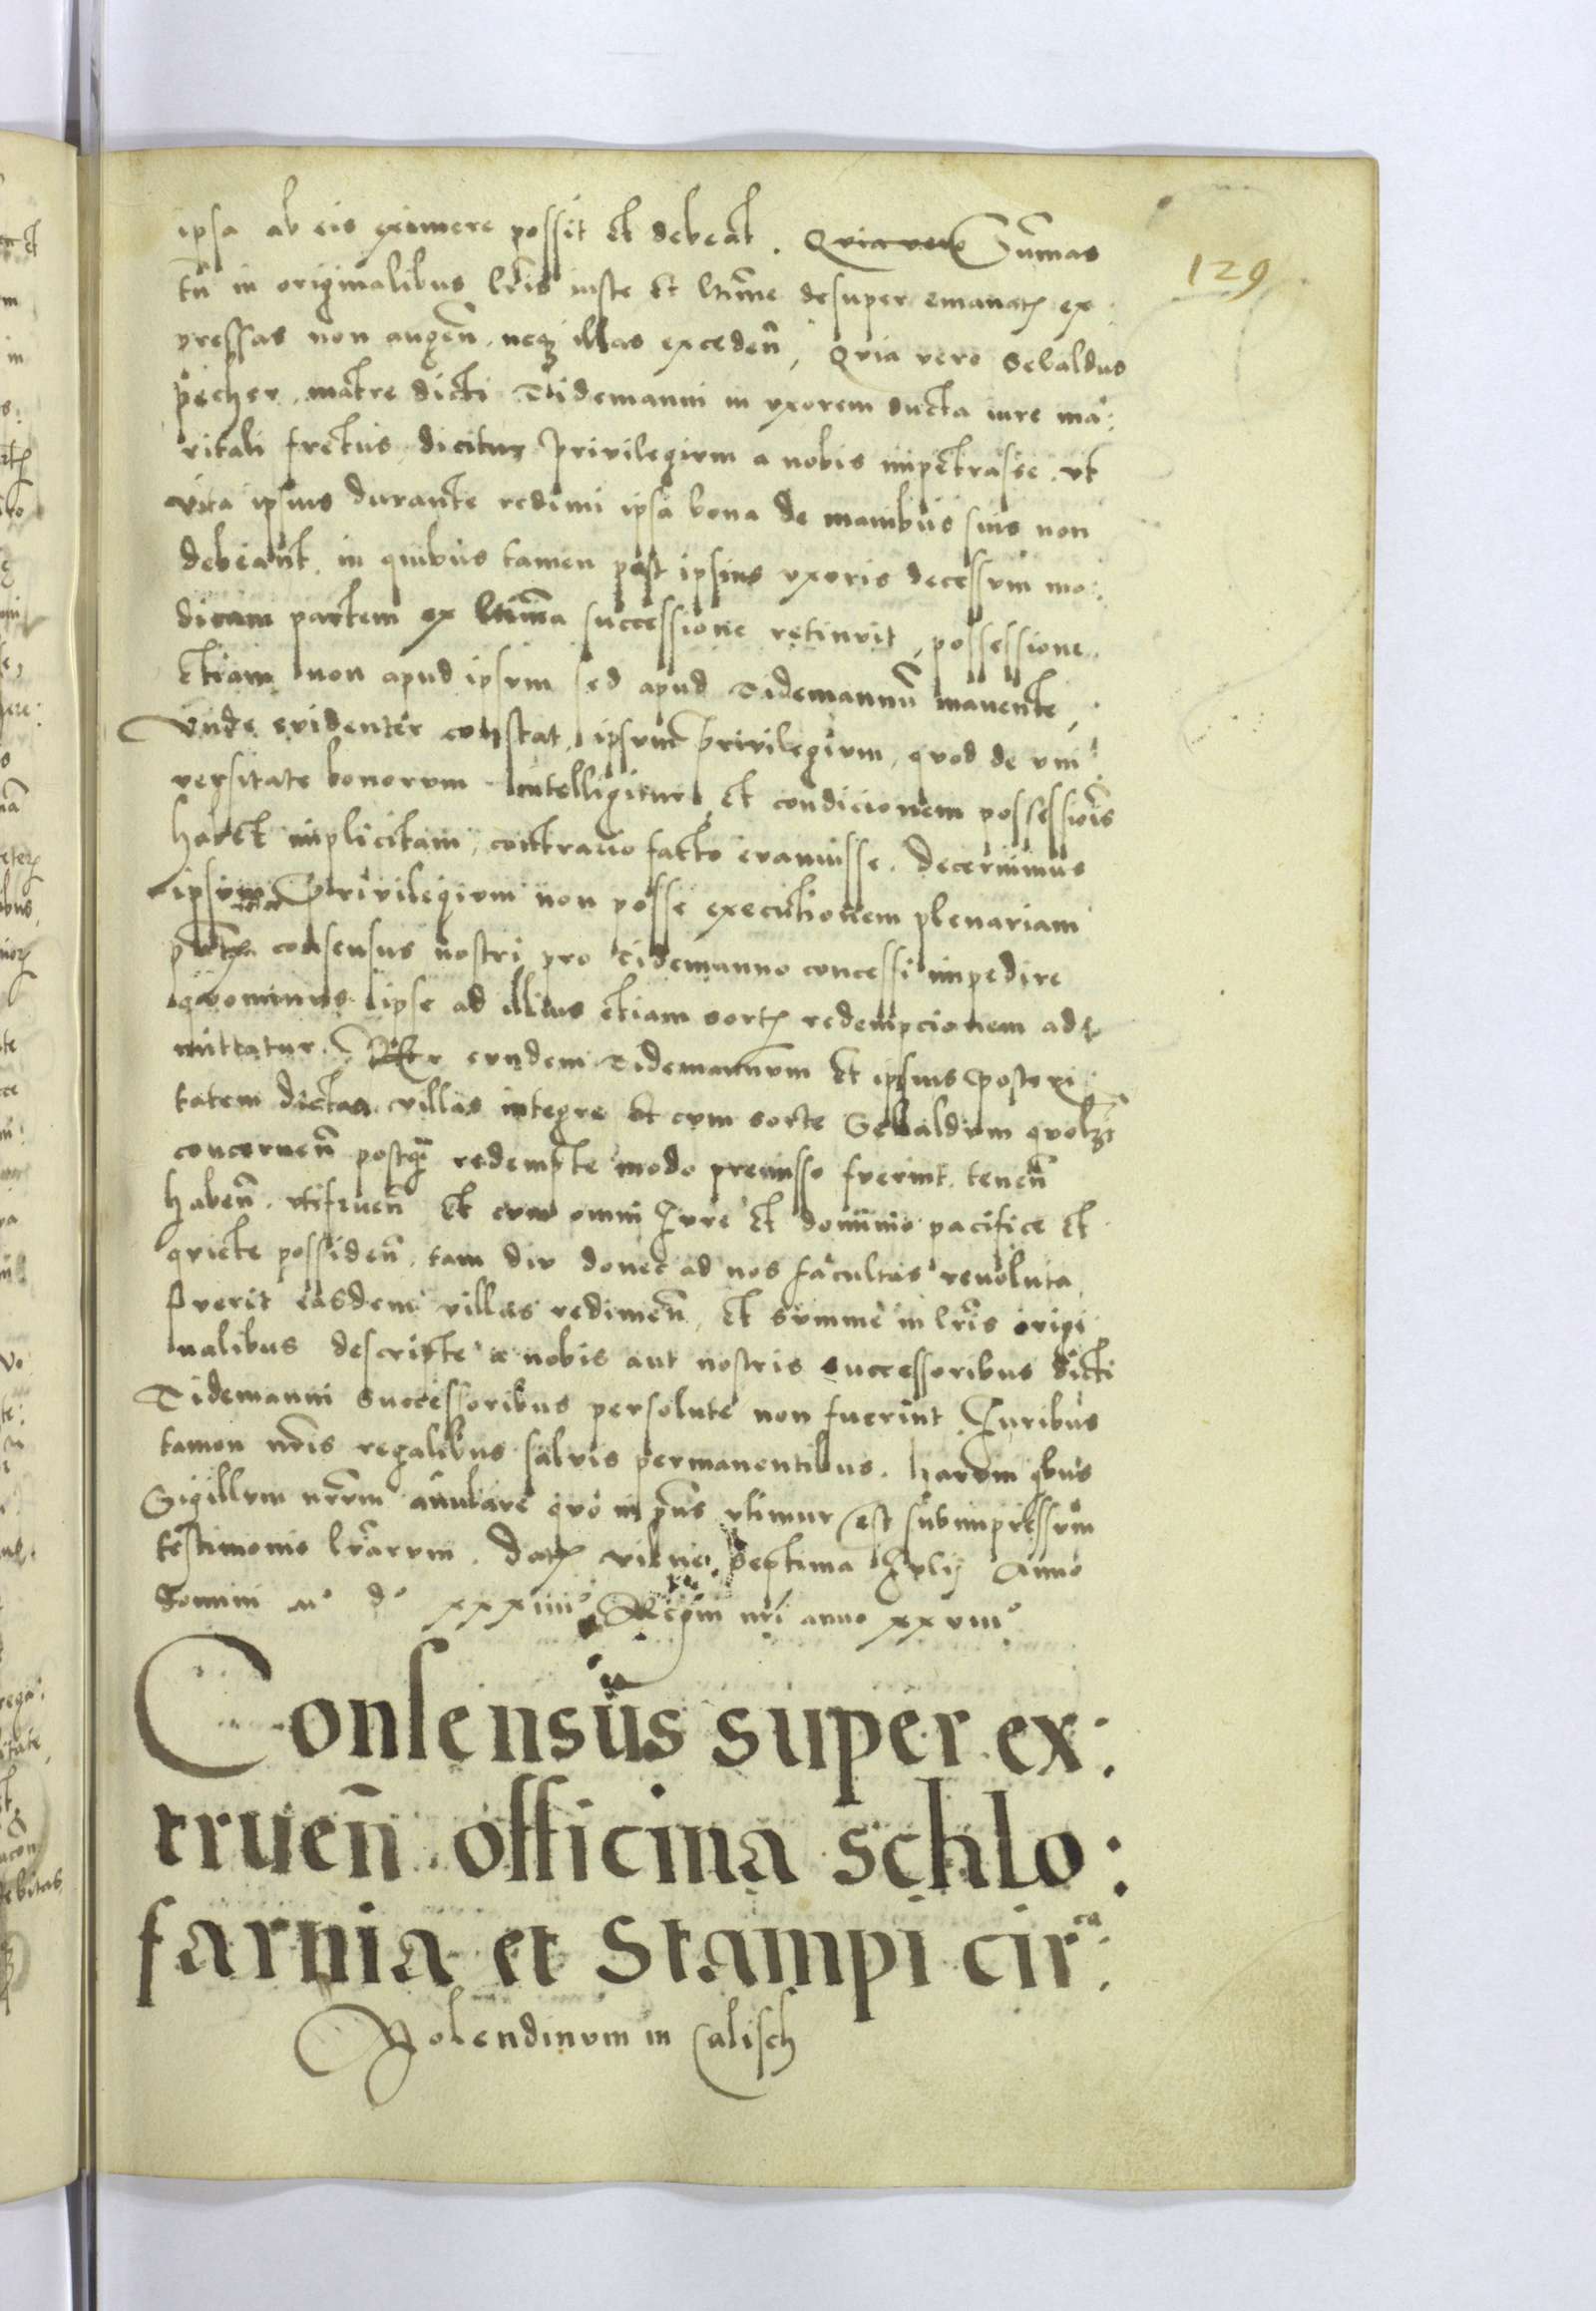 ipsa ab eis eximere possit et debeat. Quia vero Sumas
129
tn̄ in originalibus lr̄is iuste et ltīme desuper emanatꝭ ex
pressas non augen̄ neqꝫ illas exceden̄, Quia vero Sebaldus
pecher matre dicti Tidemanni in vxorem ducta iure ma:
ritali fretus dicitur Privilegivm a nobis impetrasse vt
vita ipsius durante redimi ipsa bona de manibus suis non
debeant, in quibus tamen post ipsius vxoris decessvm mo:
dicam partem ex ltīma successione retinvit, possessione
etiam non apud ipsvm sed apud Tidemannū manente,
Vnde evidenter constat ipsvm Privilegivm, qvod de vni
versitate bonorvm intelligitur et condicionem possessiōis
habet implicitam, contrario facto evanuisse. Decernimus
ipsvm Privilegivm non posse executionem plenariam
consensus nostri pro Tidemanno concessi impedire
qvominus ipse ad illius etiam sortꝭ redempcionem ad
mittatur. Per evndem Tidemannvm et ipsius posteri
tatem dictas villas integre et cvm sorte Sebaldvm
concernen̄ postqꝫ redempte modo premisso fverint tenen̄
haben̄ vtifruen̄ et cvm omni Jvre et dominio pacifice et
qviete possiden̄ tam div donec ad nos facultas revoluta
fverit easdem villas redimen̄, et svmme in lr̄is origi
nalibus descripte a nobis aut nostris successoribus dicti
Tidemanni successoribus persolute non fuerint Juribus
tamen nr̄is regalibus salvis permanentibus. Harvm qbus
Sigillvm nr̄vm anulare qvo in pn̄s vtimur est subimpressvm
testimonio lr̄arvm. Datꝭ vilne septima Jvlij Anno
Domini Mº dº xxxiiiiº Regni nr̄i anno xxviiiº
Consensus super ex:
truen̄ officina schlo:
farnia et Stampi cirᶜᵃ:
Molendinvm in Calisch